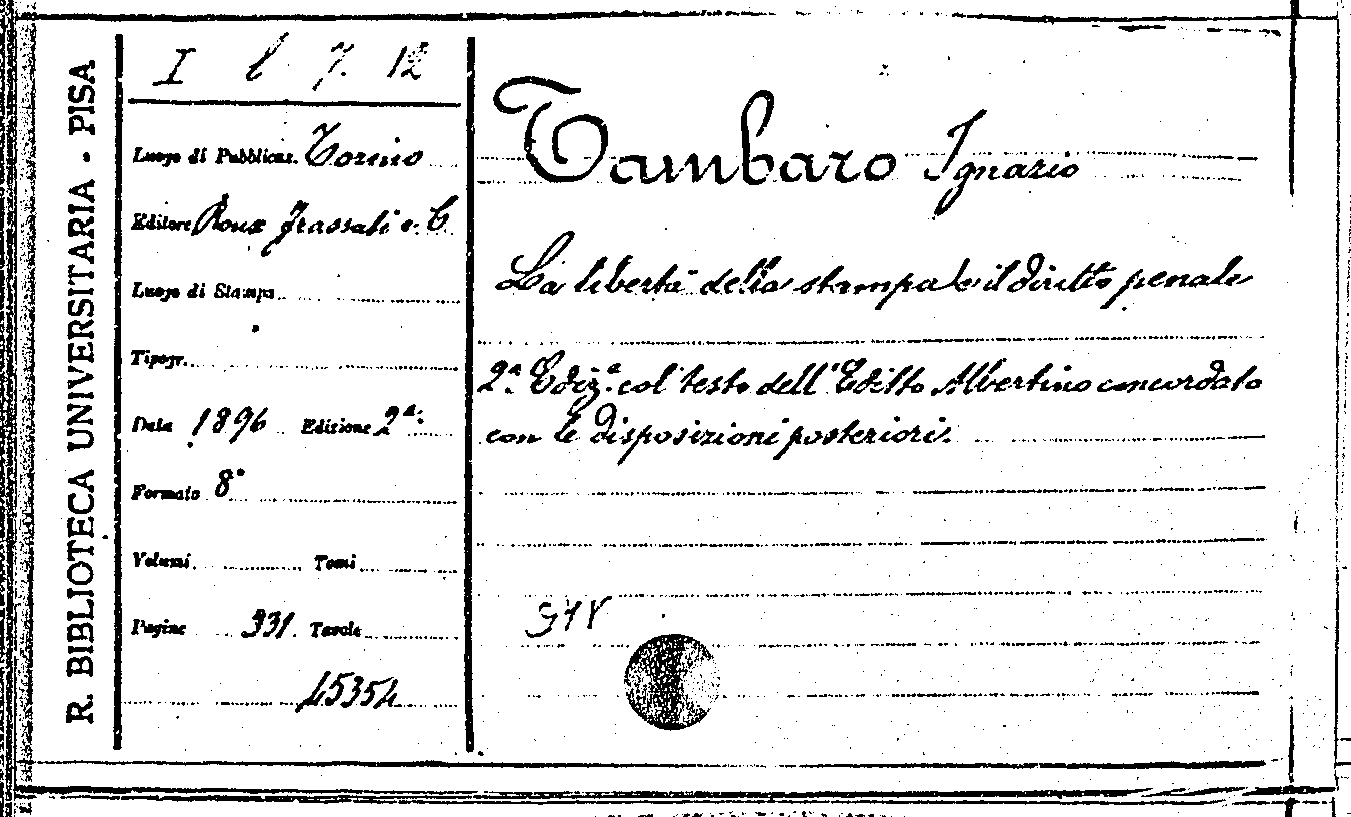 R. BIBLIOTECA UNIVERSITARIA - PISA
I l 7. 12
Luogo di Pubblicaz. Torino
Editore Roux Frassati e C
Luogo di Stampa
Tipogr.
Data 1896 Edizione 2ª
Formato 8°
Volumi Tomi
Pagine 331. Tavole
45354
Tambaro Ignazio
La libertà della stampa e il diritto penale
2ª Ediz.e col testo dell'Editto Albertino concordato
con le disposizioni posteriori.